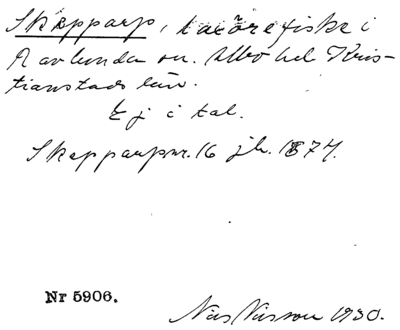 Skepparp, laxörefiske i
Ravlunda sn. Albo hd Kris-
tianstads län.
Ej i tal.
Skepparp nr. 16 jb. 1874.
Nr 5906.
Nils Nilsson 1930.